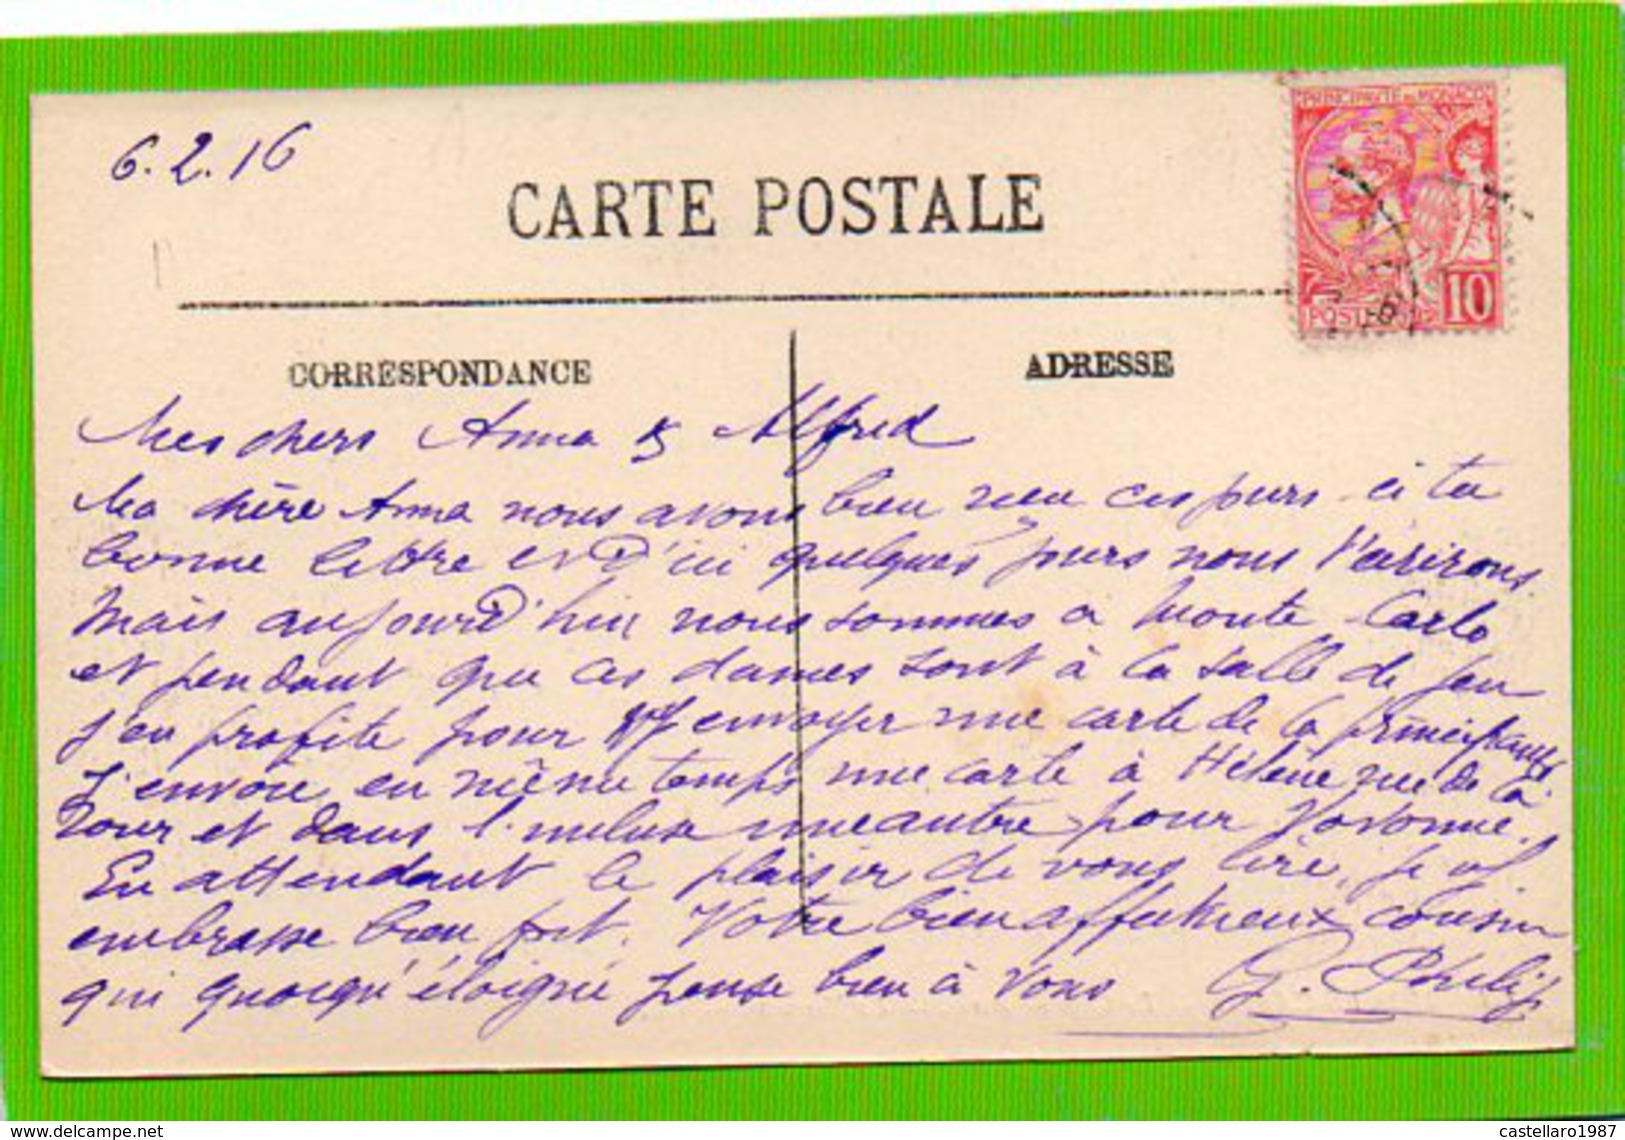 6.2.16
CARTE POSTALE
PRINCIPAUTÉ DE MONACO
10
CORRESPONDANCE
ADRESSE
Mes chers Anna & Alfred
Ma chère Anna nous avons bien reçu ces jours-ci ta
bonne lettre et d'ici quelques jours nous t'écrirons.
Mais aujourd'hui nous sommes à Monte-Carlo
et pendant que ces dames sont à la salle de jeu
j'en profite pour vs envoyer une carte de la principauté
J'envoie en même temps une carte à Hélène rue de la
Tour et dans l'incluse une autre pour Yvonne.
En attendant le plaisir de vous lire, je vs
embrasse bien fort. Votre bien affectueux cousin
qui quoiqu'éloigné pense bien à vous G. Philip
castellaro1987